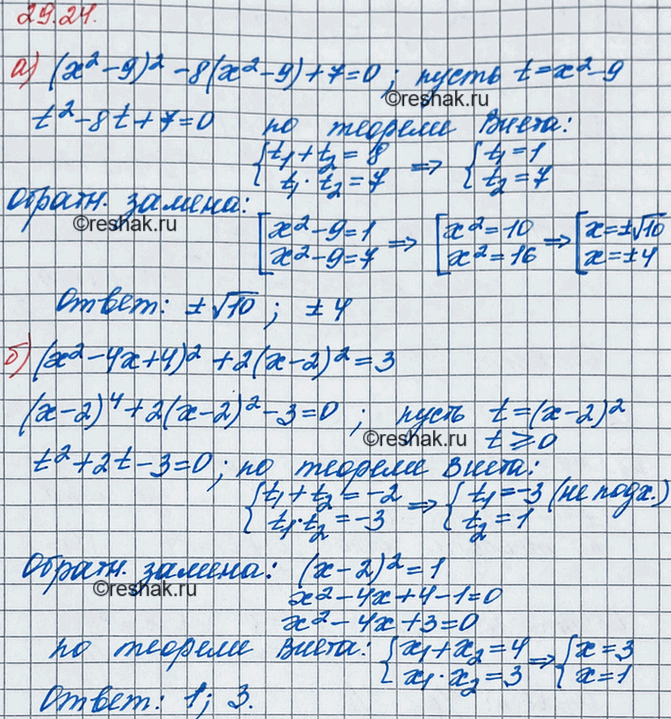 29.24.
а) (x²-9)² -8(x²-9)+7=0; пусть t=x²-9
©reshak.ru
t²-8t+7=0 по теореме Виета:
{t₁+t₂=8 ⇒ {t₁=1
{t₁·t₂=7 {t₂=7
Обратн. замена:
©reshak.ru
[x²-9=1 ⇒ [x²=10 ⇒ [x=±√10
[x²-9=7 [x²=16 [x=±4
Ответ: ±√10; ±4
б) (x²-4x+4)² +2(x-2)²=3
(x-2)⁴+2(x-2)²-3=0; пусть t=(x-2)²
©reshak.ru
t≥0
t²+2t-3=0; по теореме Виета:
{t₁+t₂=-2 ⇒ {t₁=-3 (не подх.)
{t₁·t₂=-3 {t₂=1
Обратн. замена: (x-2)²=1
©reshak.ru
x²-4x+4-1=0
x²-4x+3=0
по теореме Виета: {x₁+x₂=4 ⇒ {x=3
{x₁·x₂=3 {x=1
Ответ: 1; 3.